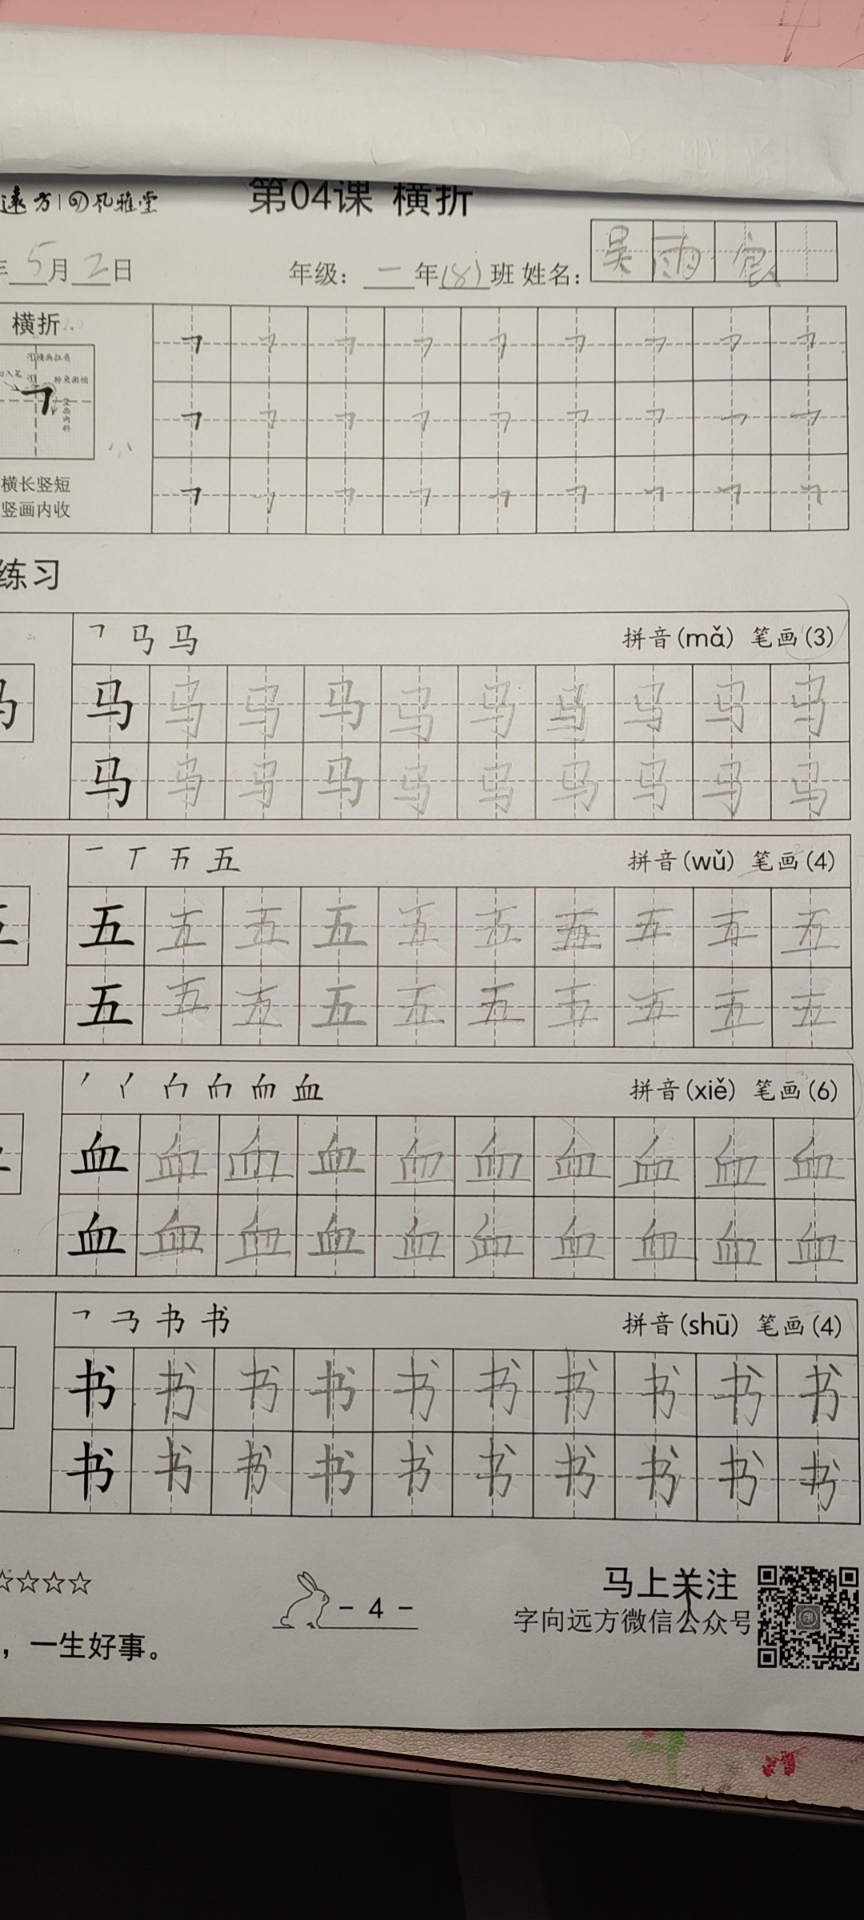 遠方|风雅堂
第04课 横折
年5月2日 年级：一年(8)班 姓名：吴雨
横折
横长竖短
竖画内收
练习
㇕ 马 马 拼音(mǎ) 笔画(3)
马 马 马 马 马 马 马 马 马 马
马 马 马 马 马 马 马 马 马 马
一 丅 五 拼音(wǔ) 笔画(4)
五 五 五 五 五 五 五 五 五 五
五 五 五 五 五 五 五 五 五 五
血 拼音(xiě) 笔画(6)
血 血 血 血 血 血 血 血 血 血
血 血 血 血 血 血 血 血 血 血
㇕ 书 书 拼音(shū) 笔画(4)
书 书 书 书 书 书 书 书 书 书
书 书 书 书 书 书 书 书 书 书
☆☆☆☆
，一生好事。
- 4 -
马上关注
字向远方微信公众号